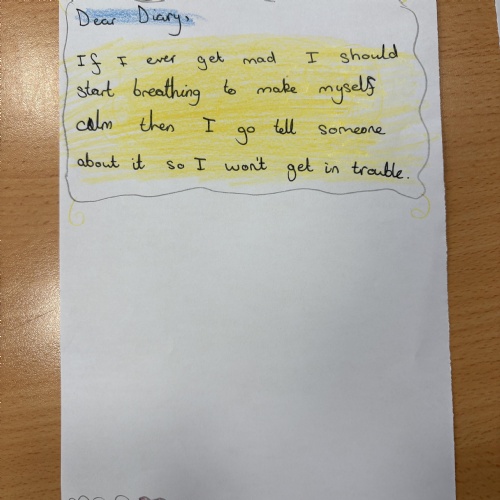 Dear Diary,
If I ever get mad I should
start breathing to make myself
calm then I go tell someone
about it so I won't get in trouble.